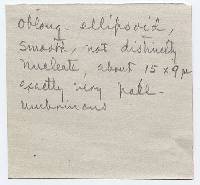 oblong ellipsoid,
smooth, not distinctly
nucleate, about 15 x 9 µ
exactly very pale -
umbrinous